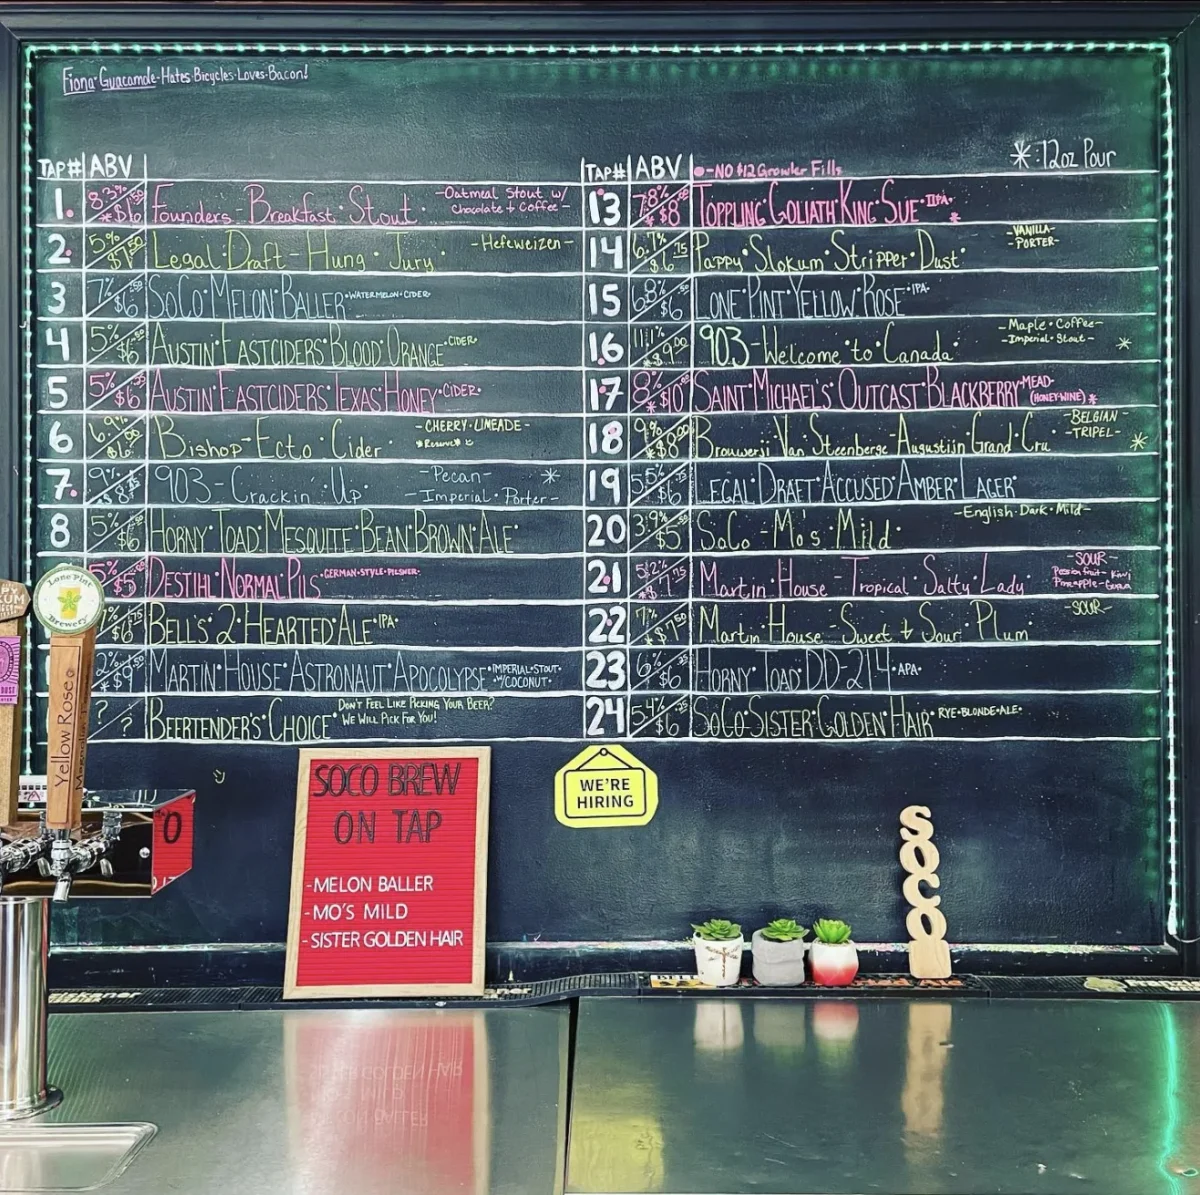 Fiona·Guacamole·Hates·Bicycles·Loves·Bacon!
*:12oz Pour
TAP# ABV
1. 8.3% *$6.50 Founders-Breakfast Stout -Oatmeal Stout w/
Chocolate + Coffee-
2. 5% Legal·Draft-Hung·Jury· -Hefeweizen-
3 7% $6 SoCo·Melon·Baller·WATERMELON·CIDER·
4 5% $6 Austin·Eastciders·Blood·Orange·CIDER·
5 5% $6 Austin·Eastciders·Texas·Honey·CIDER·
6 6.9% Bishop-Ecto·Cider -CHERRY·LIMEADE-
*Reserve*
7. 9% 903-Crackin' Up· -Pecan-
-Imperial·Porter- *
8 5% $6 Horny·Toad·Mesquite·Bean·Brown·Ale
5% $5 Destihl·Normal·Pils·GERMAN-STYLE-PILSNER·
7% $6 Bell's·2·Hearted·Ale·IPA·
*$9 Martin·House·Astronaut·Apocolypse·IMPERIAL·STOUT·
W/COCONUT·
? / ? Beertender's·Choice· DON'T FEEL LIKE PICKING YOUR BEER?
WE WILL PICK FOR YOU!
TAP# ABV ●-NO $12 Growler Fills
13 7.8% *$8 Toppling·Goliath·King·Sue·IIPA· *
14 6.7% $6.75 Pappy·Slokum·Stripper·Dust· -VANILLA-
-PORTER-
15 6.8% $6 Lone·Pint·Yellow·Rose·IPA·
16 11.1% *$9.00 903-Welcome·to·Canada· -Maple·Coffee-
-Imperial·Stout- *
17 8% *$10 Saint·Michael's·Outcast·Blackberry·MEAD·
(HONEY·WINE) *
18 9% *$8.00 Brouwerji·Van·Steenberge-Augustijn·Grand·Cru· -BELGIAN-
-TRIPEL- *
19 5.5% $6 Legal·Draft·Accused·Amber·Lager·
20 3.9% $5 SoCo-Mo's·Mild· -English·Dark·Mild-
21 5.2% Martin·House-Tropical·Salty·Lady -SOUR-
Passionfruit-Kiwi
Pineapple-Guava
22 7% *$7.50 Martin·House-Sweet + Sour·Plum· -SOUR-
23 6% $6 Horny·Toad·DD-214·APA·
24 5.4% $6 SoCo·Sister·Golden·Hair·RYE·BLONDE·ALE·
Lone Pint
Brewery
Yellow Rose
SOCO BREW
ON TAP
-MELON BALLER
-MO'S MILD
-SISTER GOLDEN HAIR
WE'RE
HIRING
SOCO